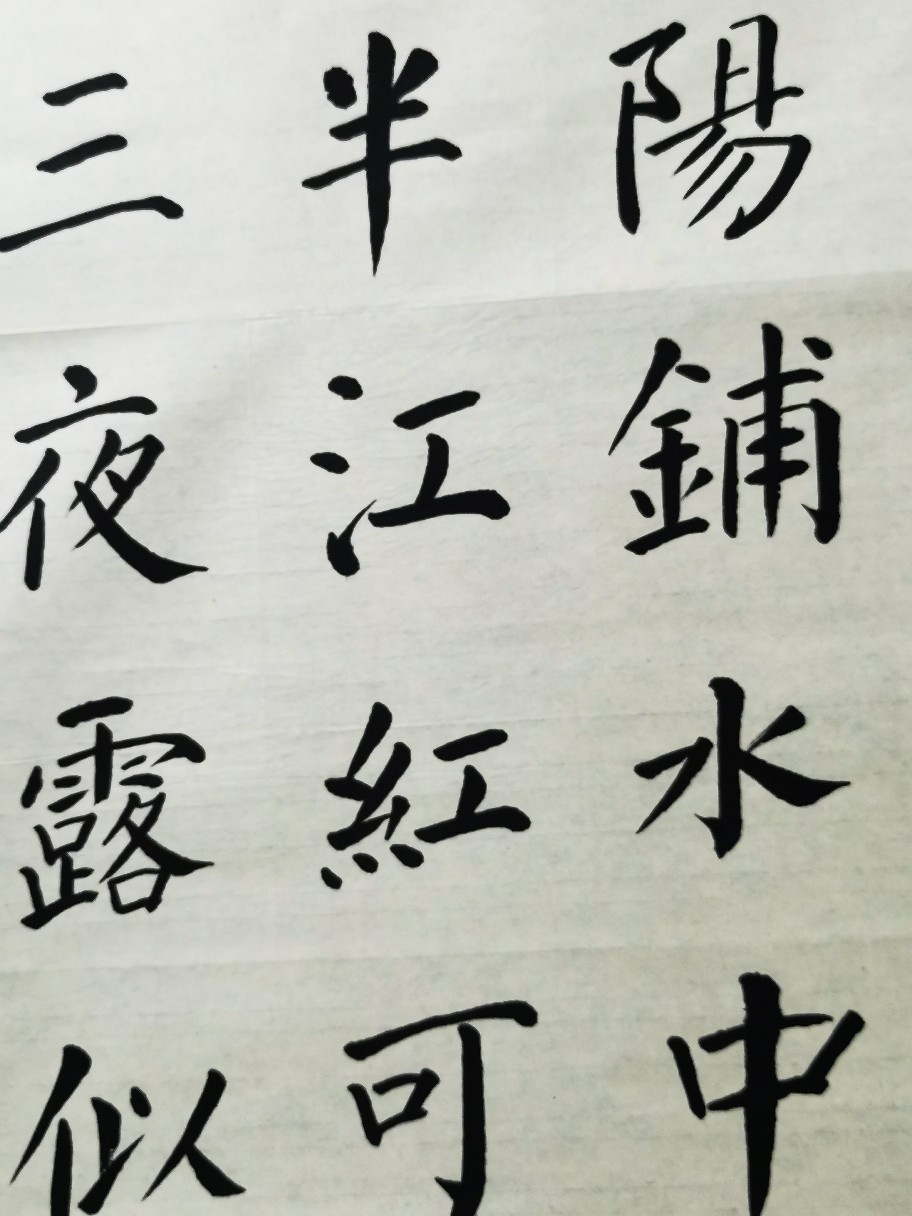 陽鋪水中
半江紅可
三夜露似